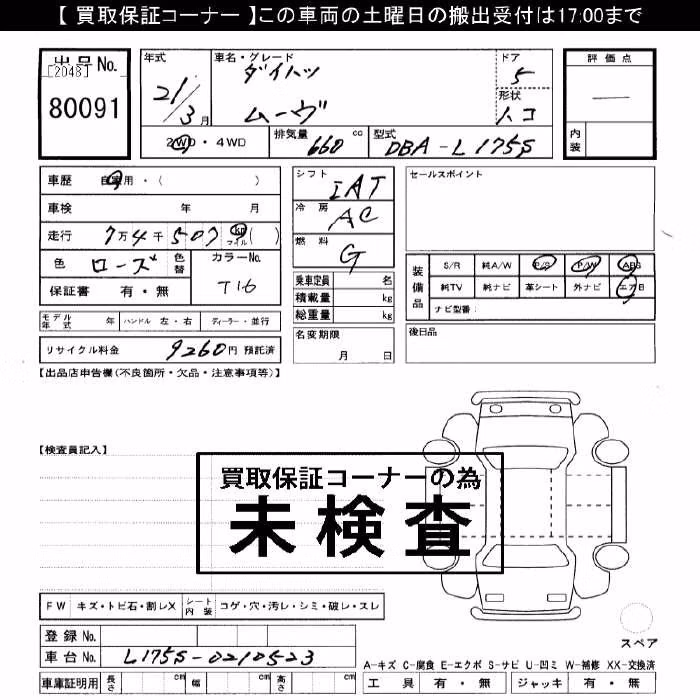 【 買取保証コーナー 】この車両の土曜日の搬出受付は17:00まで
出品No.
[2048]
80091
年式
21/3月
車名・グレード
ダイハツ
ムーヴ
ドア
5
形状
ハコ
評価点
―
内装
2WD・4WD
排気量
660 cc
型式
DBA-L175S
車歴 自家用・( )
車検 年 月
走行 7万4千507 km マイル ( )
色 ローズ 色替
カラーNo.
T16
保証書 有・無
シフト
IAT
冷房
AC
燃料
G
乗車定員 名
積載量 kg
総重量 kg
名変期限
月 日
セールスポイント
装備品
S/R 純A/W P/S P/W ABS
純TV 純ナビ 革シート 外ナビ エアB
ナビ型番:
後日品
モデル年式 年 ハンドル 左・右 ディーラー・並行
リサイクル料金 9260円 預託済
【出品店申告欄(不良箇所・欠品・注意事項等)】
【検査員記入】
買取保証コーナーの為
未検査
FW キズ・トビ石・割レX シート内装 コゲ・穴・汚レ・シミ・破レ・スレ
スペア
登録No.
車台No. L175S-0210523
車庫証明用 長さ cm 幅 cm 高さ cm
A-キズ C-腐食 E-エクボ S-サビ U-凹ミ W-補修 XX-交換済
工具 有・無 ジャッキ 有・無